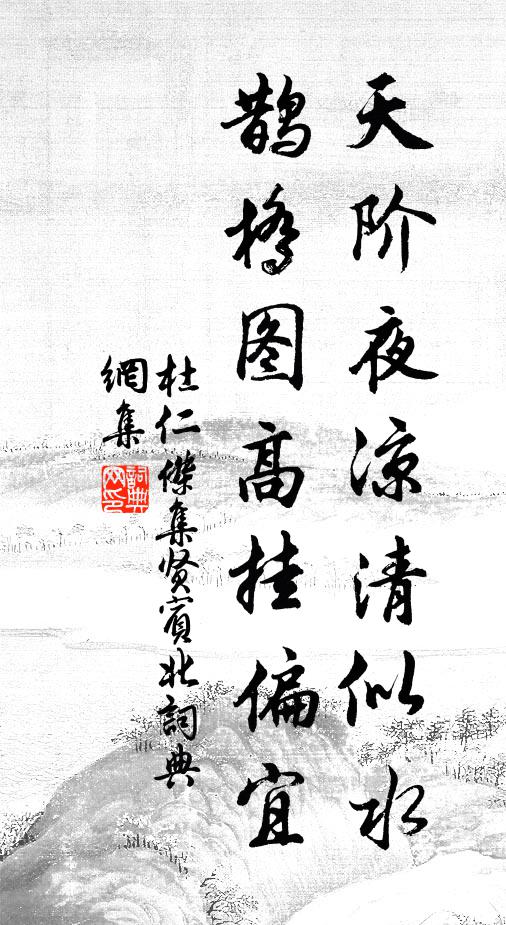 天阶夜凉清似水
鹊桥图高挂偏宜
杜仁傑集贤宾北詞典
網集
詞典网印